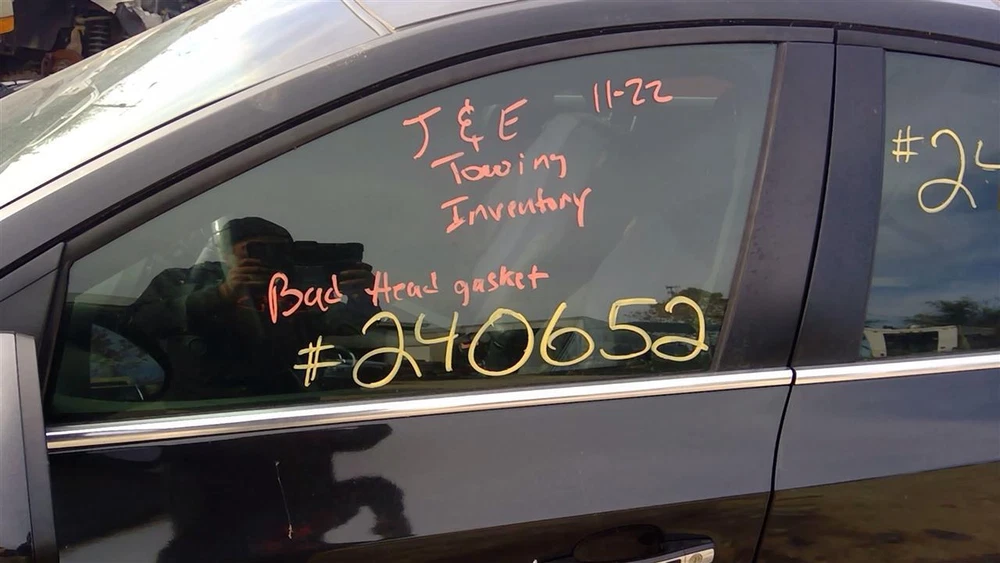 J & E 11-22
Towing
Inventory
Bad Head gasket
#240652
#24